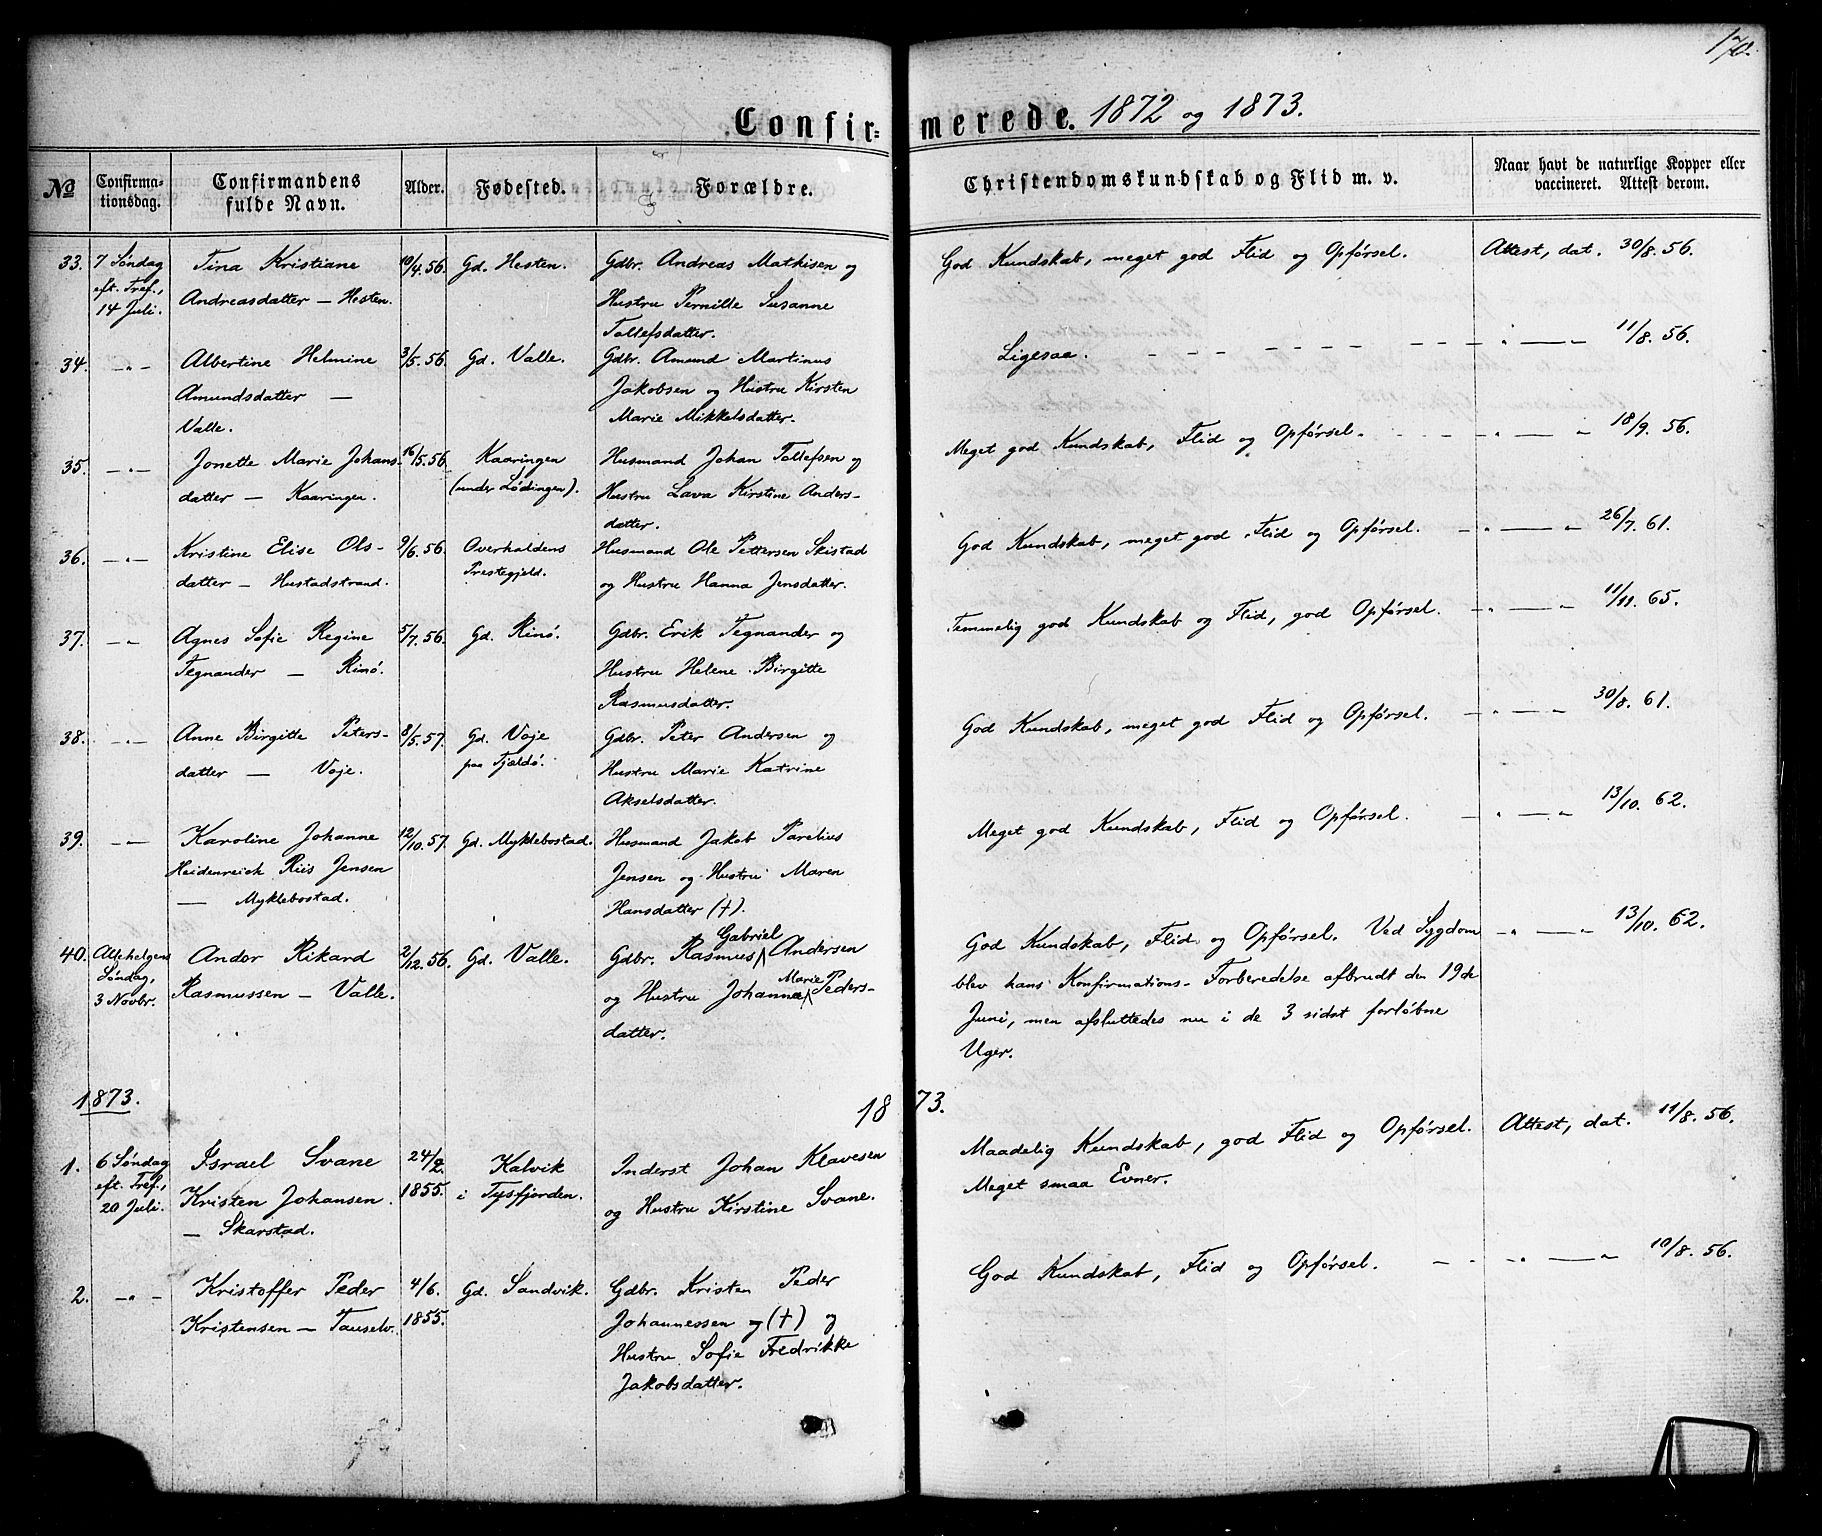 170.
Confirmerede. 1872 og 1873.
No
Confirma-
tionsdag.
Confirmandens
fulde Navn.
Alder.
Fødested.
Forældre.
Christendomskundskab og Flid m. v.
Naar havt de naturlige Kopper eller
vaccineret. Attest derom.
33. 7 Søndag Tina Kristiane 10/4. 56. Gd. Hesten. Gdbr. Andreas Mathisen og God Kundskab, meget god Flid og Opførsel. Attest, dat. 30/8. 56.
eft. Tref., Andreasdatter — Hesten. Hustru Pernille Susanne
14 Juli. Tollefsdatter.
34. —„— Albertine Helmine 3/5. 56. Gd. Valle. Gdbr. Amund Martinus Ligesaa. — — — — — — — „ —— „ 11/8. 56.
Amundsdatter — Jakobsen og Hustru Kirsten
Valle. Marie Mikkelsdatter.
35. —„— Jonette Marie Johans- 16/5. 56. Kaaringen Husmand Johan Tollefsen og Meget god Kundskab, Flid og Opførsel. — — — „ —— „ 18/9. 56.
datter — Kaaringen. (under Lødingen). Hustru Lava Kirstine Anders-
datter.
36. —„— Kristine Elise Ols- 9/6. 56. Overhaldens Husmand Ole Pettersen Skistad God Kundskab, meget god Flid og Opførsel. — „ —— „ 26/7. 61.
datter — Hustadstrand. Prestegjeld. og Hustru Hanna Jensdatter.
37. —„— Agnes Sofie Regine 5/7. 56. Gd. Rinø. Gdbr. Erik Tegnander og Temmelig god Kundskab og Flid, god Opførsel. — „ —— „ 11/11. 65.
Tegnander — Rinø. Hustru Helene Birgitte
Rasmusdatter.
38. —„— Anne Birgitte Peters- 8/5. 57. Gd. Voje Gdbr. Peter Andersen og God Kundskab, meget god Flid og Opførsel. — „ —— „ 30/8. 61.
datter — Voje. paa Tjældø. Hustru Marie Katrine
Akselsdatter.
39. —„— Karoline Johanne 12/10. 57. Gd. Myklebostad. Husmand Jakob Parelius Meget god Kundskab, Flid og Opførsel. — „ —„— 13/10. 62.
Heidenreich Riis Jensen Jensen og Hustru Maren
— Myklebostad. Hansdatter (†).
40. Allehelgens Andor Rikard 2/12. 56. Gd. Valle. Gdbr. Rasmus Gabriel Andersen God Kundskab, Flid og Opførsel. Ved Sygdom — „ —— „ 13/10. 62.
Søndag, Rasmussen — Valle. og Hustru Johanna Marie Peders- blev hans Konfirmations-Forberedelse afbrudt den 19de
3 Novbr. datter. Juni, men afsluttedes nu i de 3 sidst forløbne
Uger.
1873. 1873.
1. 6 Søndag Israel Svane 24/2. Kalvik Inderst Johan Klavesen Maadelig Kundskab, god Flid og Opførsel. Attest, dat. 11/8. 56.
eft. Tref., Kristen Johansen. 1855. i Tysfjorden. og Hustru Kirstine Svane. Meget smaa Evner.
20 Juli. — Skarstad.
2. —„— Kristoffer Peder 4/6. Gd. Sandvik. Gdbr. Kristen Peder God Kundskab, Flid og Opførsel. — — „ —— „ 10/8. 56.
Kristensen — Tauselv. 1855. Johannessen og (†) og
Hustru Sofie Fredrikke
Jakobsdatter.